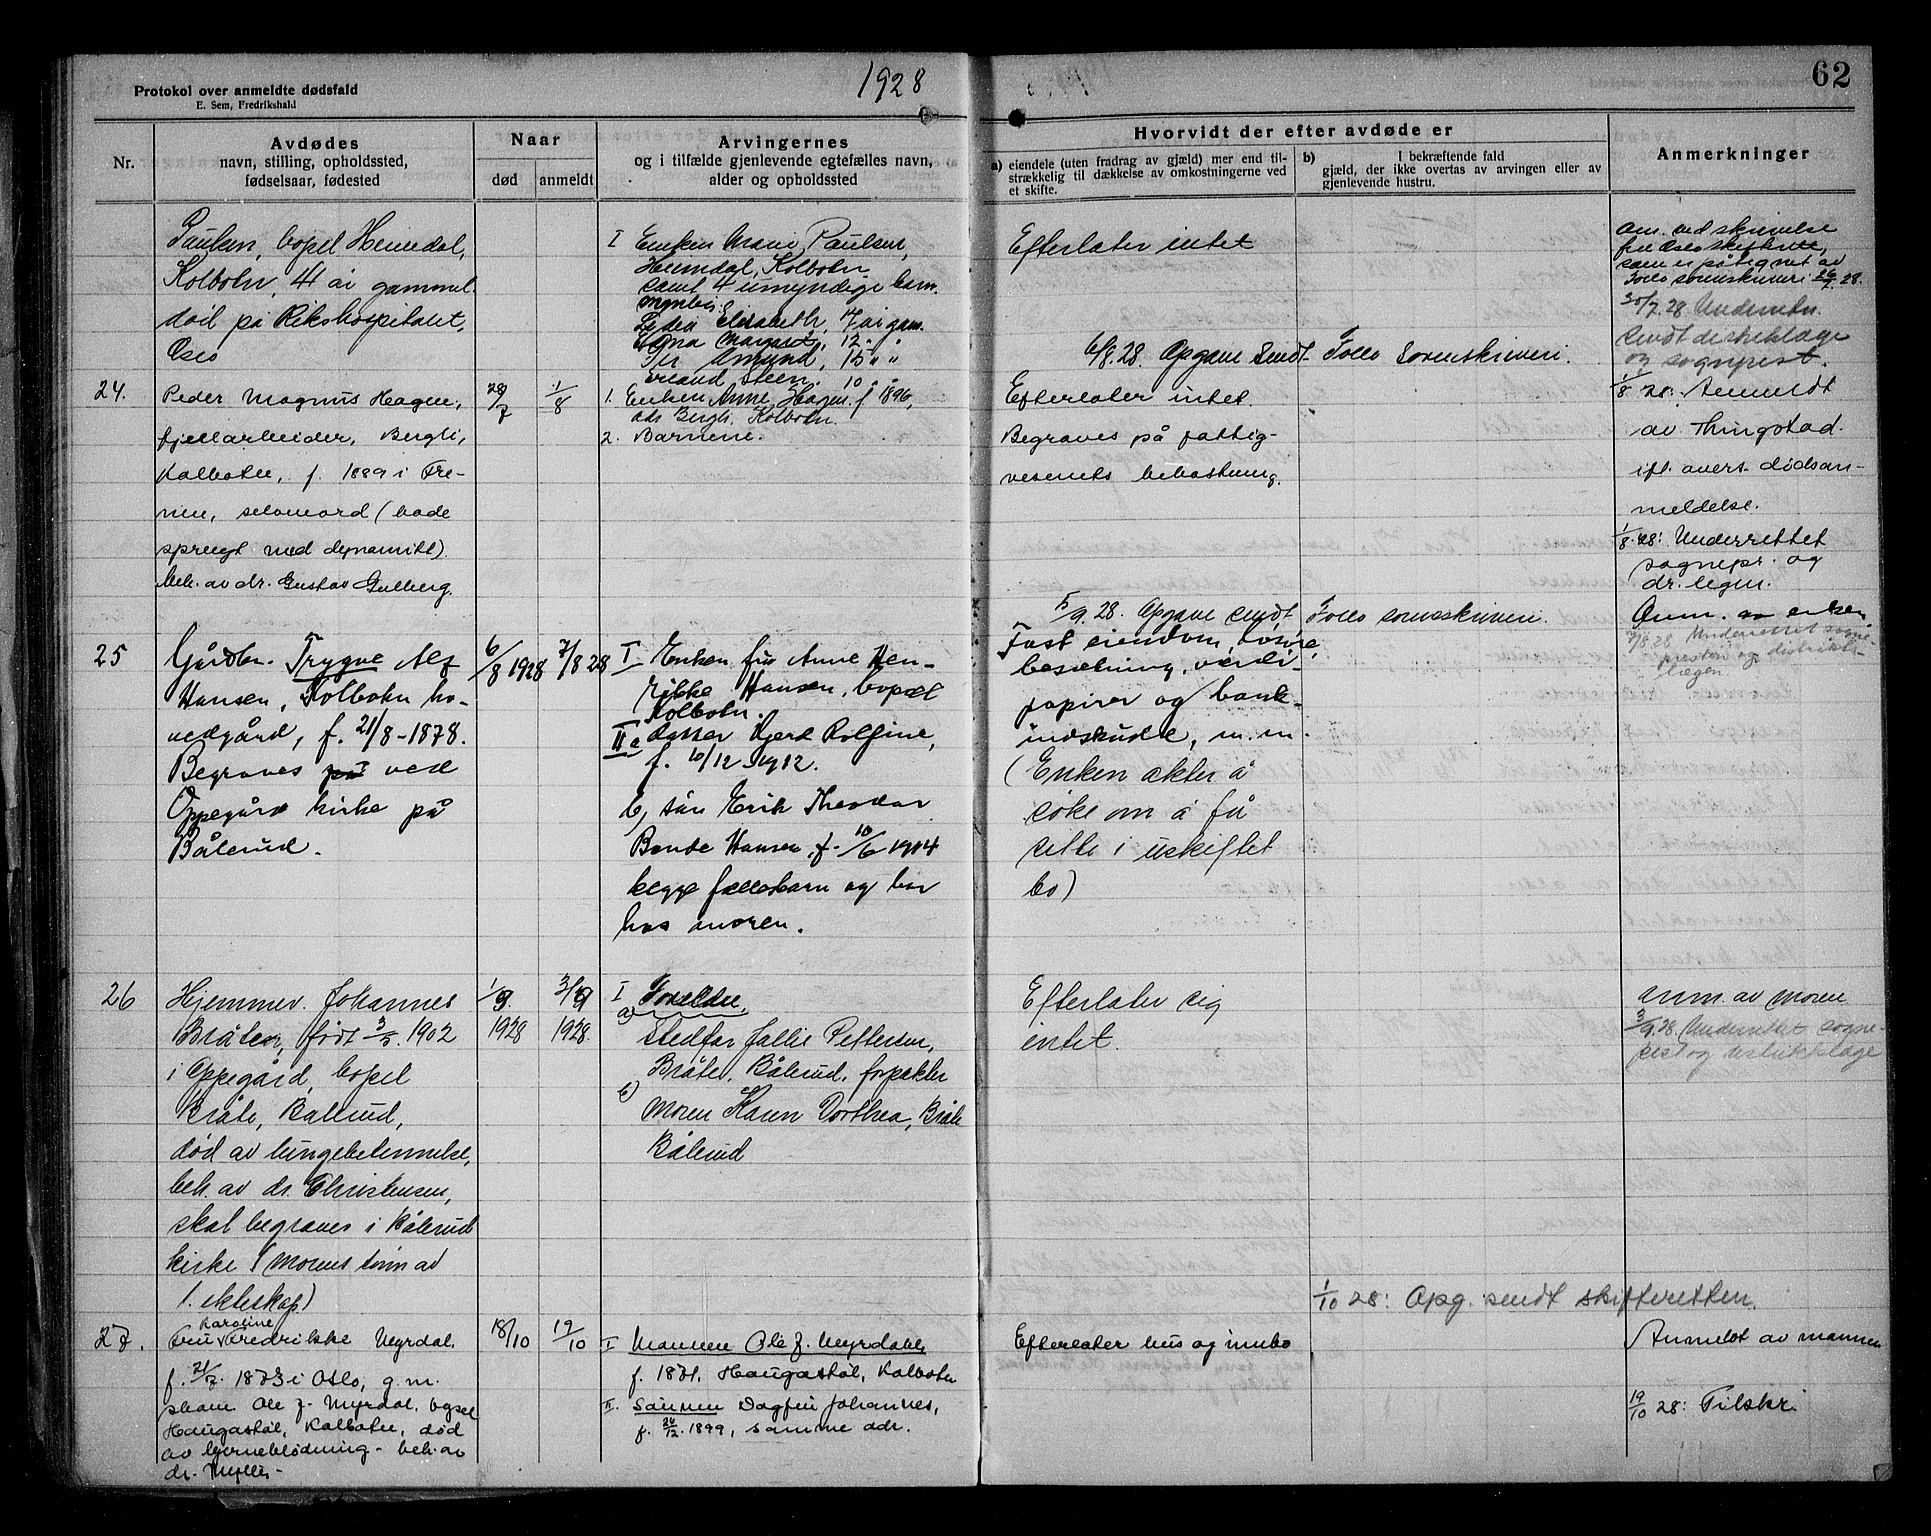 1928
62
Protokol over anmeldte dødsfald
E. Sem, Fredrikshald
Nr.
Avdødes
navn, stilling, opholdssted,
fødselsaar, fødested
Naar
død
anmeldt
Arvingernes
og i tilfælde gjenlevende egtefælles navn,
alder og opholdssted
Hvorvidt der efter avdøde er
a) eiendele (uten fradrag av gjæld) mer end til-
strækkelig til dækkelse av omkostningerne ved
et skifte.
b) I bekræftende fald
gjæld, der ikke overtas av arvingen eller av
gjenlevende hustru.
Anmerkninger
Paulsen, bopel Heimdal,
Kolbotn, 41 år gammel
død på Rikshospitalet,
Oslo
I Enken Marie Paulsen,
Heimdal, Kolbotn
samt 4 umyndige barn
Elisabeth, 7 år gam.
Margaret, 12 " "
Per Amund, 15 " "
Erland Steen, 10 " "
Efterlater intet
6/8.28. Opgave sendt Follo Sorenskriveri.
Anm. ved skrivelse
fra Oslo skifterett,
som er påtegnet av
Follo sorenskriveri 26/7 28.
30/7.28 Underretn.
sendt distriktslæge
og sogneprest.
24.
Peder Magnus Hagen,
fjellarbeider, Bergli,
Kolbotn, f. 1889 i Tre-
nen, selvmord (hode
sprengt med dynamitt).
beh. av dr. Gustav Gulberg.
29/7
1/8
1. Enken Anne Hagen f 1896,
ads Bergli, Kolbotn.
2. Barnene.
Efterlater intet.
Begraves på fattig-
vesenets bekostning.
5/9.28. Opgave sendt Follo sorenskriveri.
1/8 28: Anmeldt
av Thingstad
ifl. avers. dødsan-
meldelse.
1/8.28: Underrettet
sognepr. og
dr. legen.
25
Gårdbr. Trygve Alf
Hansen, Kolbotn ho-
vedgård, f. 21/8-1878.
Begraves på ved
Oppegård kirke på
Bålerud.
6/8 1928
7/8 28
I Enken fru Anne Hen-
rikke Hansen, bopæl
Kolbotn.
II a datter Gjerd Rolfine,
f. 10/12-1912.
b, søn Erik Theodor
Bonde Hansen, f. 10/6 1914
begge fællesbarn og bor
hos moren.
Fast eiendom, løsøre,
besetning, verdi-
papirer og bank-
indskudd, m.m.
(Enken akter å
søke om å få
sitte i uskiftet
bo)
Anm. av enken
7/8.28 Underrettet sogne-
presten og distrikts-
lægen.
26
Hjemmev. Johannes
Bråten, født 3/3. 1902
i Oppegård, bopel
Bråte, Bålerud,
død av lungebetennelse,
beh. av dr. Christensen,
skal begraves i Bålerud
kirke (morens sønn av
1. ekteskap)
1/9.
1928
3/9
1928.
I Foreldre
a)
Stedfar Jallis Pettersen,
Bråte, Bålerud, forpakter
b)
Moren Karen Dorthea, Bråte
Bålerud
Efterlater sig
intet.
1/10 28: Opg. sendt skifteretten.
Anm. av moren
3/9.28 Underrettet sogne-
prest og distriktslæge
27.
Karoline
Fru Fredrikke Myrdal,
f. 21/7. 1873 i Oslo, g.m.
Ole J. Myrdal, bopel
Haugastøl, Kolbotn, død
av hjerneblødning - beh. av
dr.
18/10
19/10
I Mannen Ole J. Myrdahl,
f. 1871, Haugastøl, Kolbotn
II. Sønnen Dagfin Johannes,
f. 26/12. 1899, samme adr.
Efterlater hus og innbo
Anmeldt av mannen
19/10 28: Tilskr.